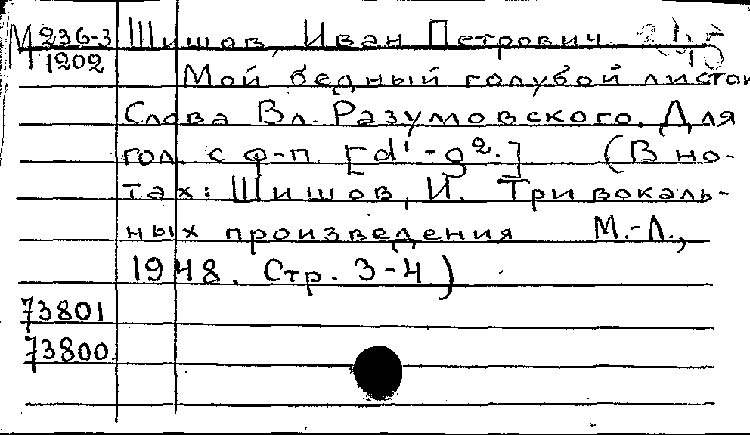 М 236-3 Шишов, Иван Петрович
1202
Мой бедный голубой листок
Слова Вл. Разумовского. Для
гол. с ф-п. [d'-g².] (В но-
тах: Шишов, И. Три вокаль-
ных произведения М.-Л.,
1948. Стр. 3-4)
73801
73800